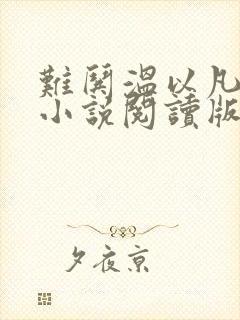 難鬨溫以凡
小說閱讀版
夕夜京